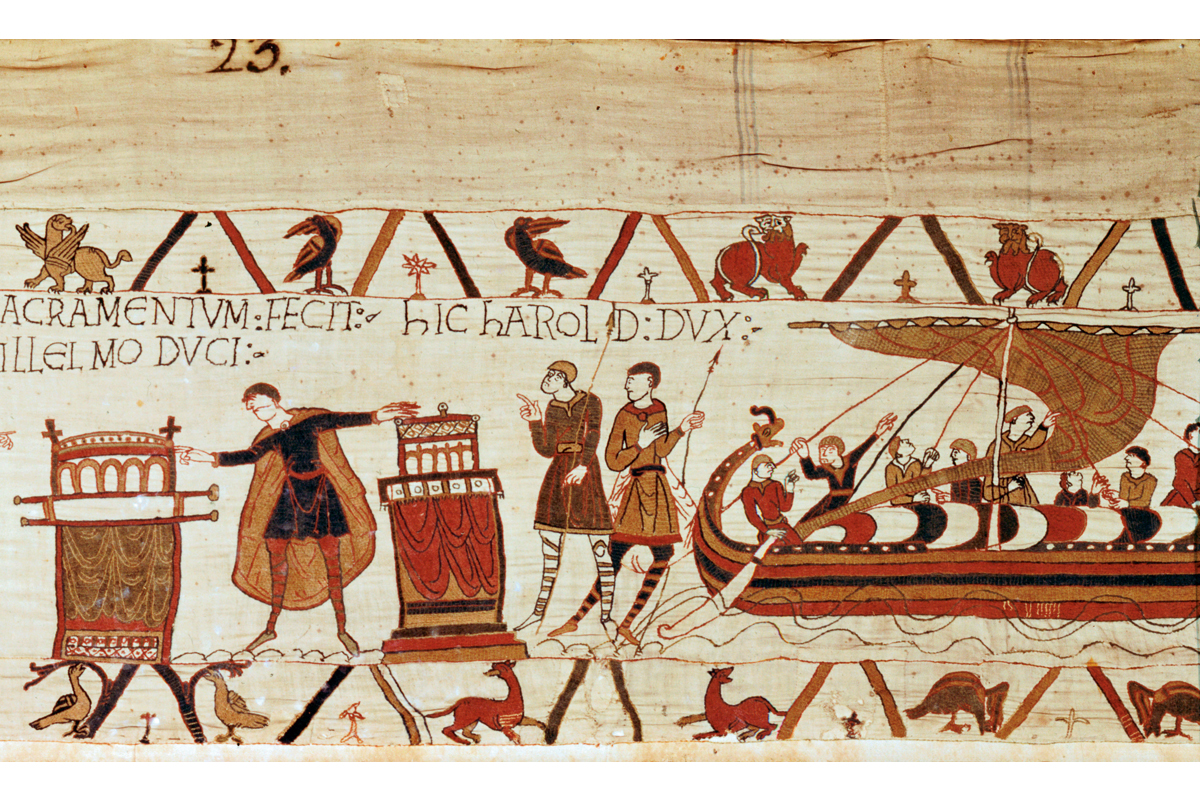 23.
SACRAMENTVM:FECIT:~ hIC hAROLD:DVX:~
ILLELMO DVCI:~